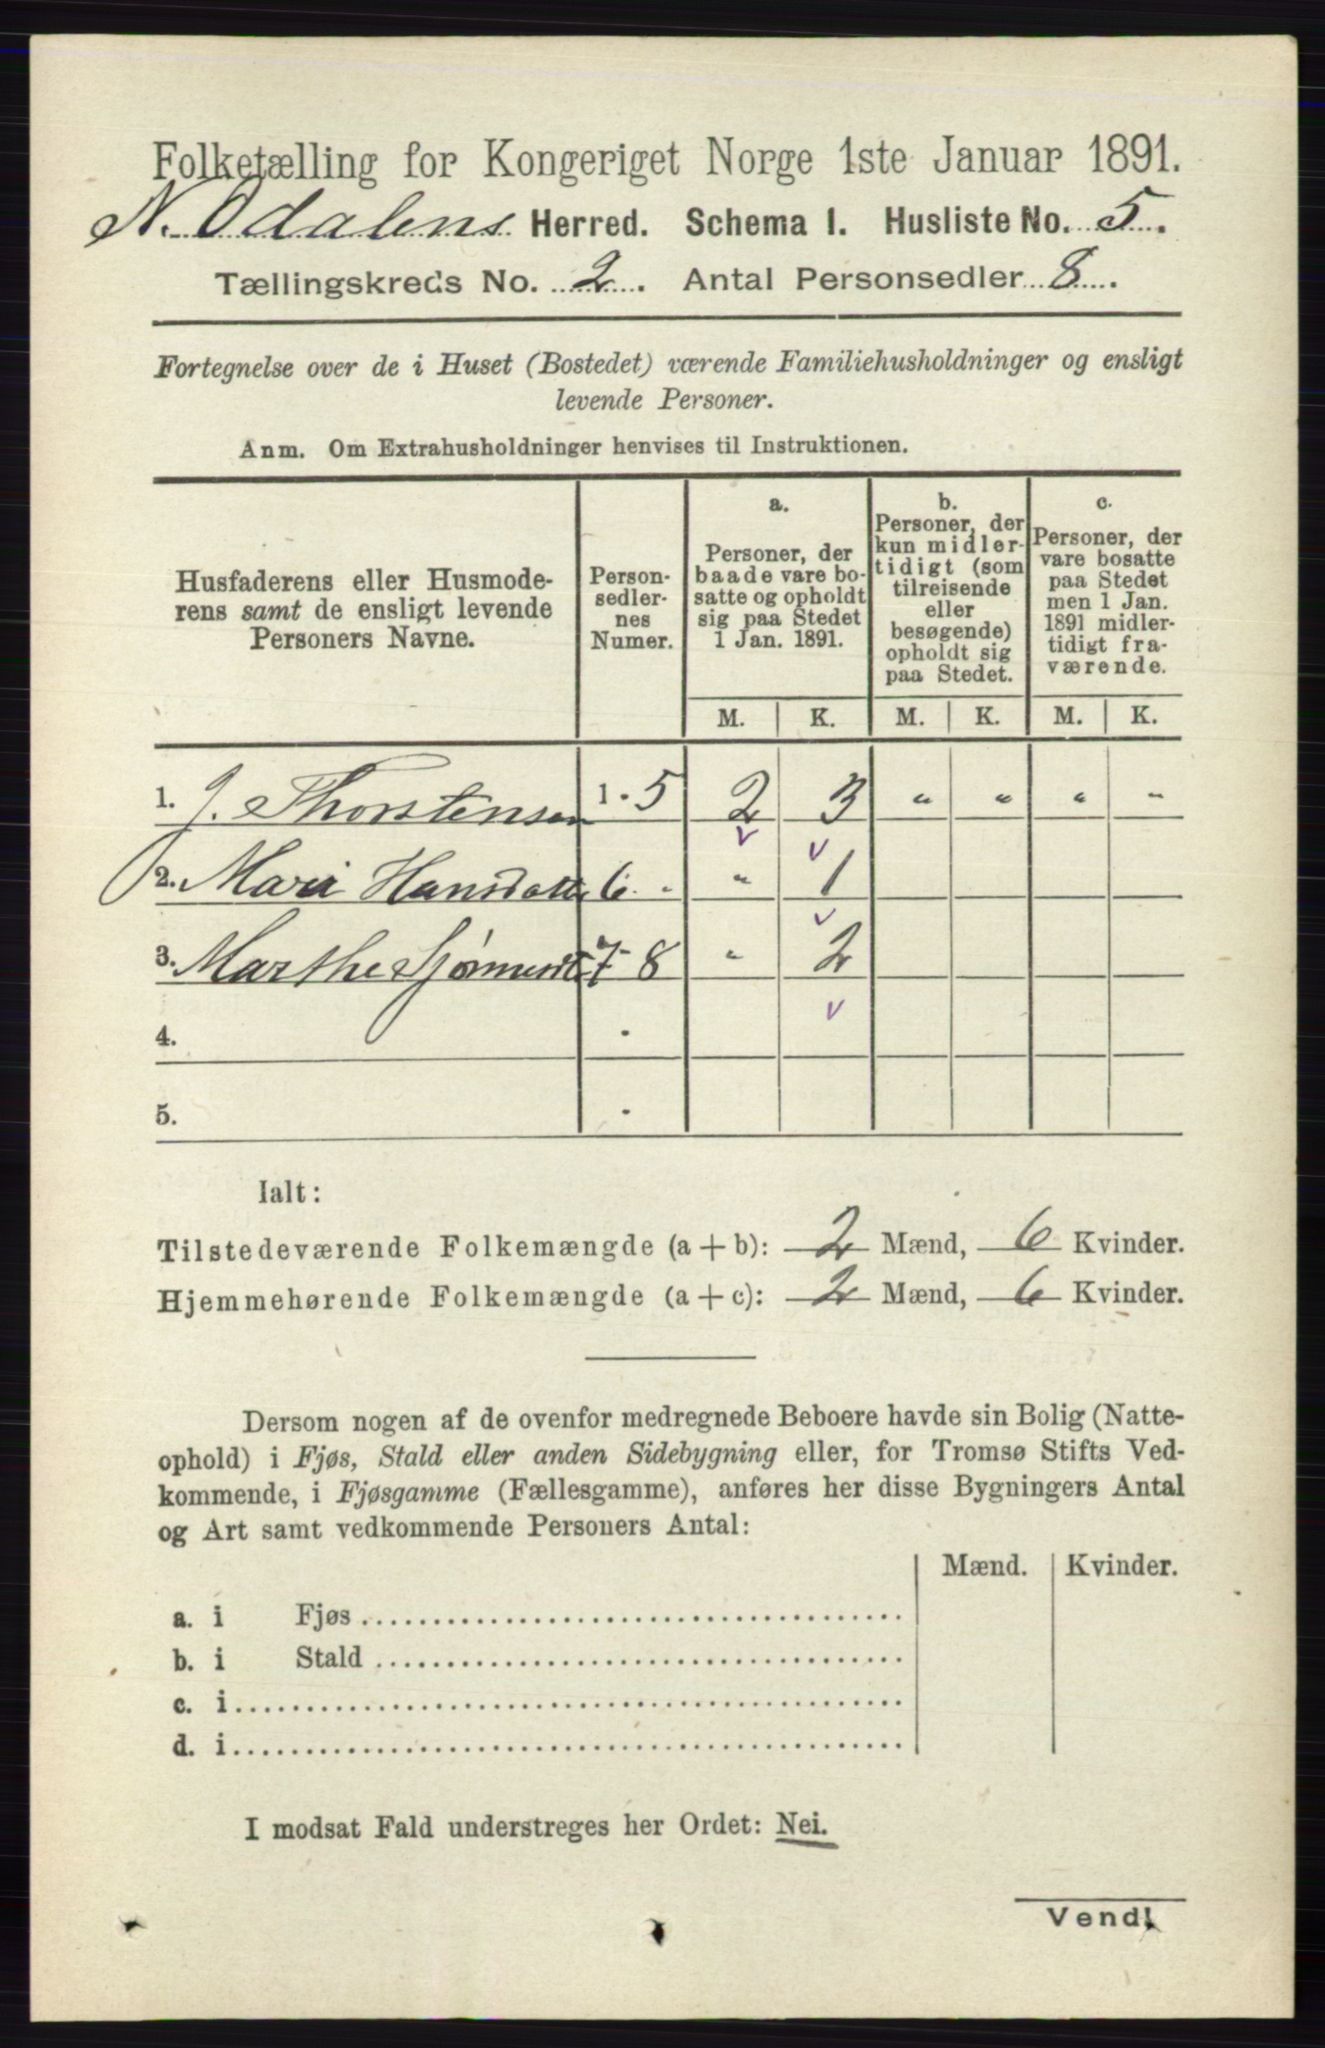 Folketælling for Kongeriget Norge 1ste Januar 1891.
N. Odalens Herred. Schema I. Husliste No. 5.
Tællingskreds No. 2. Antal Personsedler 8.
Fortegnelse over de i Huset (Bostedet) værende Familiehusholdninger og ensligt
levende Personer.
Anm. Om Extrahusholdninger henvises til Instruktionen.
Husfaderens eller Husmode-
rens samt de ensligt levende
Personers Navne.
Person-
sedler-
nes
Numer.
a.
Personer, der
baade vare bo-
satte og opholdt
sig paa Stedet
1 Jan. 1891.
b.
Personer, der
kun midler-
tidigt (som
tilreisende
eller
besøgende)
opholdt sig
paa Stedet.
c.
Personer, der
vare bosatte
paa Stedet
men 1 Jan.
1891 midler-
tidigt fra-
værende.
M. K. M. K. M. K.
1. J. Thorstensen 1 - 5 2 3 " " " "
2. Mari Hansdatt 6 - " 1
3. Marthe 7 - 8 " 2
4. -
5. -
Ialt:
Tilstedeværende Folkemængde (a + b): 2 Mænd, 6 Kvinder.
Hjemmehørende Folkemængde (a + c): 2 Mænd, 6 Kvinder.
Dersom nogen af de ovenfor medregnede Beboere havde sin Bolig (Natte-
ophold) i Fjøs, Stald eller anden Sidebygning eller, for Tromsø Stifts Ved-
kommende, i Fjøsgamme (Fællesgamme), anføres her disse Bygningers Antal
og Art samt vedkommende Personers Antal:
Mænd. Kvinder.
a. i Fjøs
b. i Stald
c. i
d. i
I modsat Fald understreges her Ordet: Nei.
Vend!